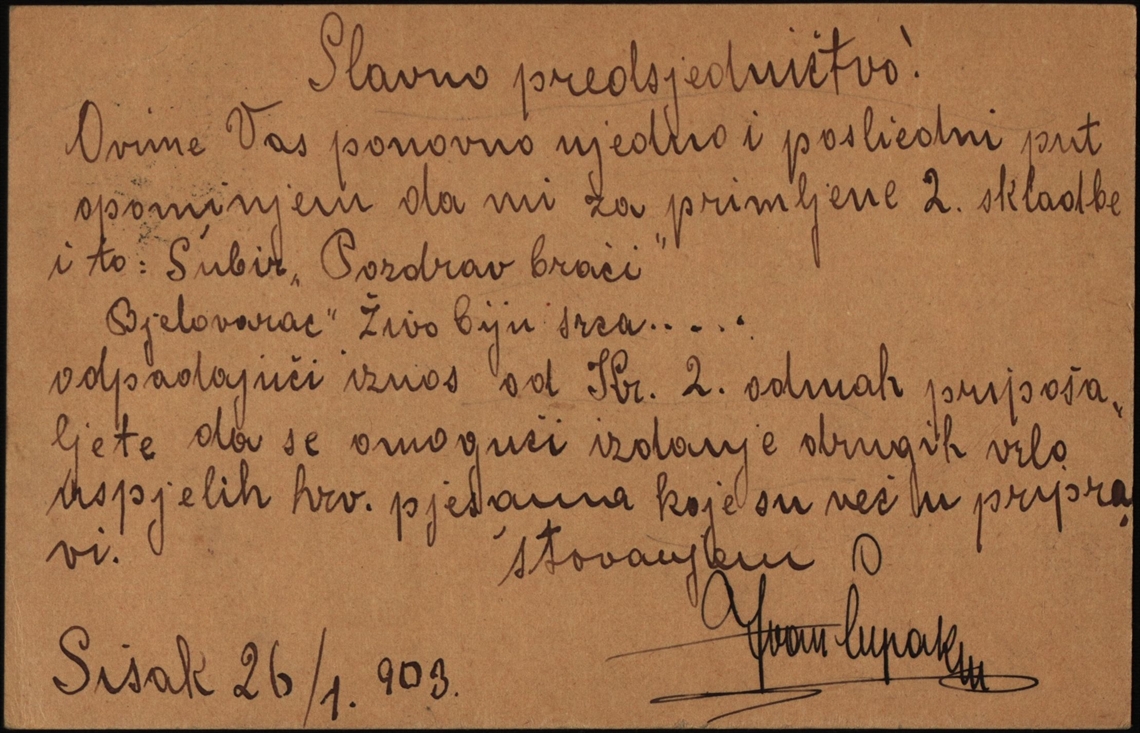 Slavno predsjedništvo!
Ovime Vas ponovno ujedno i posliedni put
opominjem da mi za primljene 2. skladbe
i to: Šubir „Pozdrav braći"
Bjelovarac" Živo biju srca.....
odpadajući iznos od Kr. 2. odmah pripoša„
ljete da se omogući izdanje drugih vrlo
uspjelih hrv. pjesama koje su već u pripra„
vi. štovanjem
Ivan Cupak
Sisak 26/1. 903.